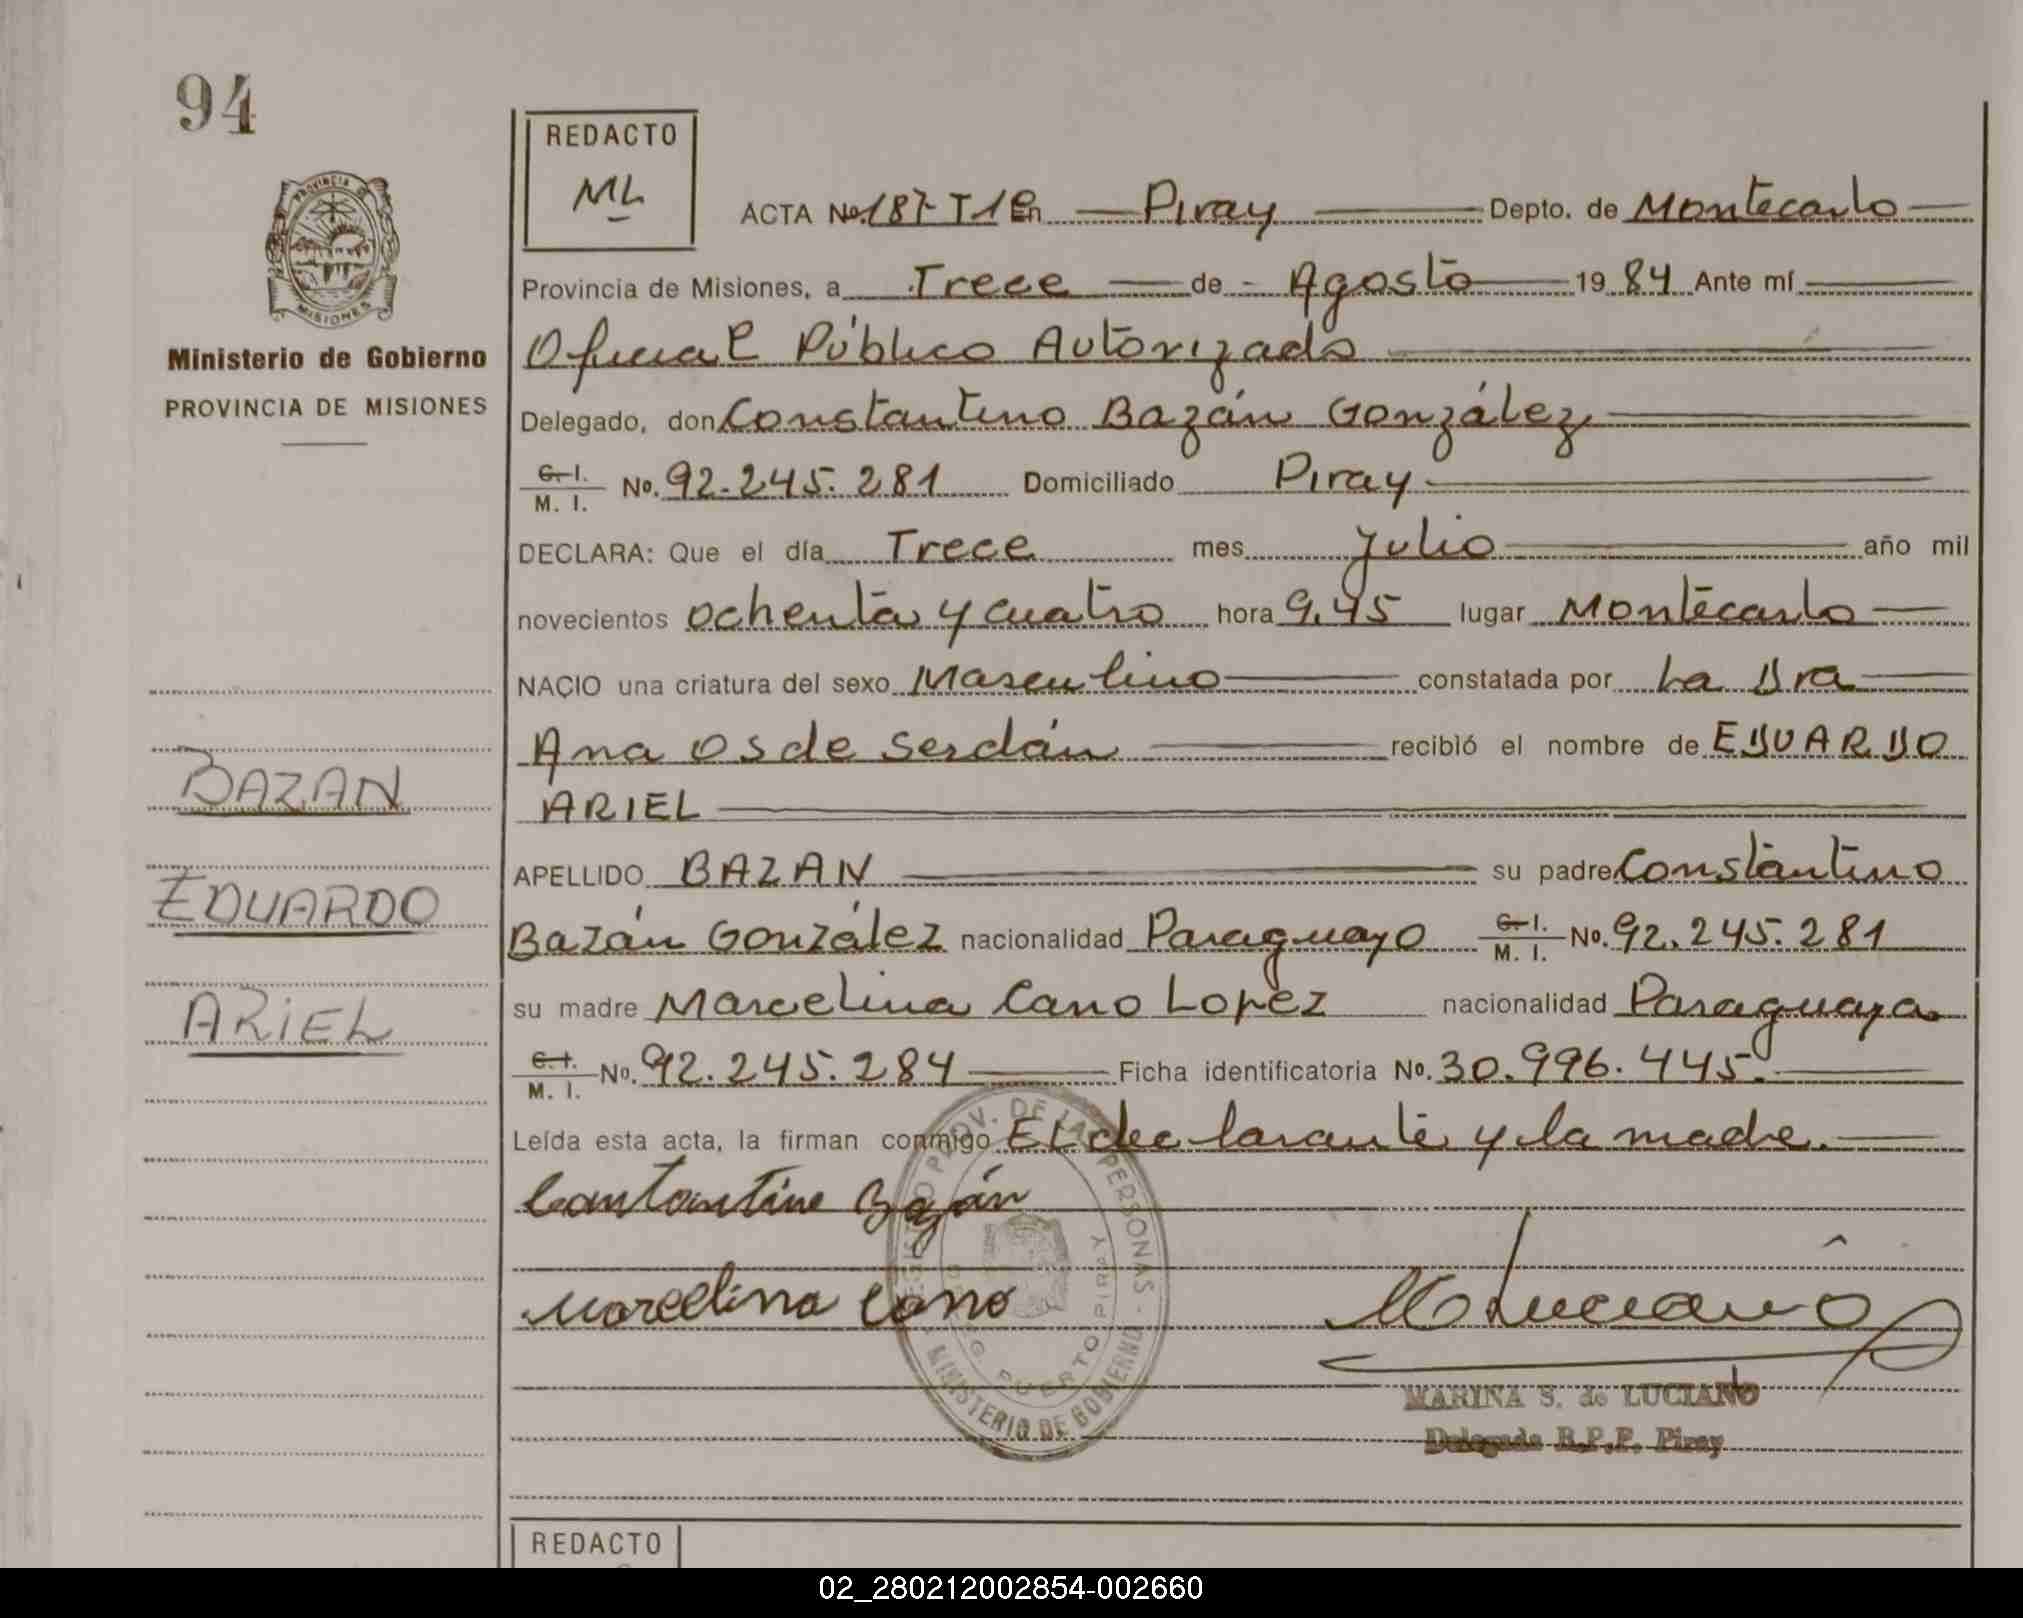 94
REDACTO
ML
ACTA No. 187-T1º En Piray Depto. de Montecarlo
PROVINCIA DE
MISIONES
Provincia de Misiones, a Trece de Agosto 1984 Ante mí
Ministerio de Gobierno
Oficial Público Autorizado
PROVINCIA DE MISIONES
Delegado, don Constantino Bazán González
C. I.
M. I. No. 92.245.281 Domiciliado Piray
DECLARA: Que el día Trece mes Julio año mil
novecientos ochenta y cuatro hora 9,45 lugar Montecarlo
NACIO una criatura del sexo Masculino constatada por La Dra
Ana Os de Serdán recibió el nombre de EDUARDO
BAZAN
ARIEL
APELLIDO BAZAN su padre Constantino
EDUARDO
Bazán González nacionalidad Paraguayo C. I. M. I. No. 92.245.281
ARIEL
su madre Marcelina Cano Lopez nacionalidad Paraguaya
C. I.
M. I. No. 92.245.284 Ficha identificatoria No. 30.996.445.
Leída esta acta, la firman conmigo El declarante y la madre.
Constantino Bazán
Marcelina Cano
M Luciano
REGISTRO PROV. DE LAS PERSONAS - MINISTERIO DE GOBIERNO
DELEG. PUERTO PIRAY
MARINA S. de LUCIANO
Delegada R.P.P. Piray
REDACTO
02_280212002854-002660